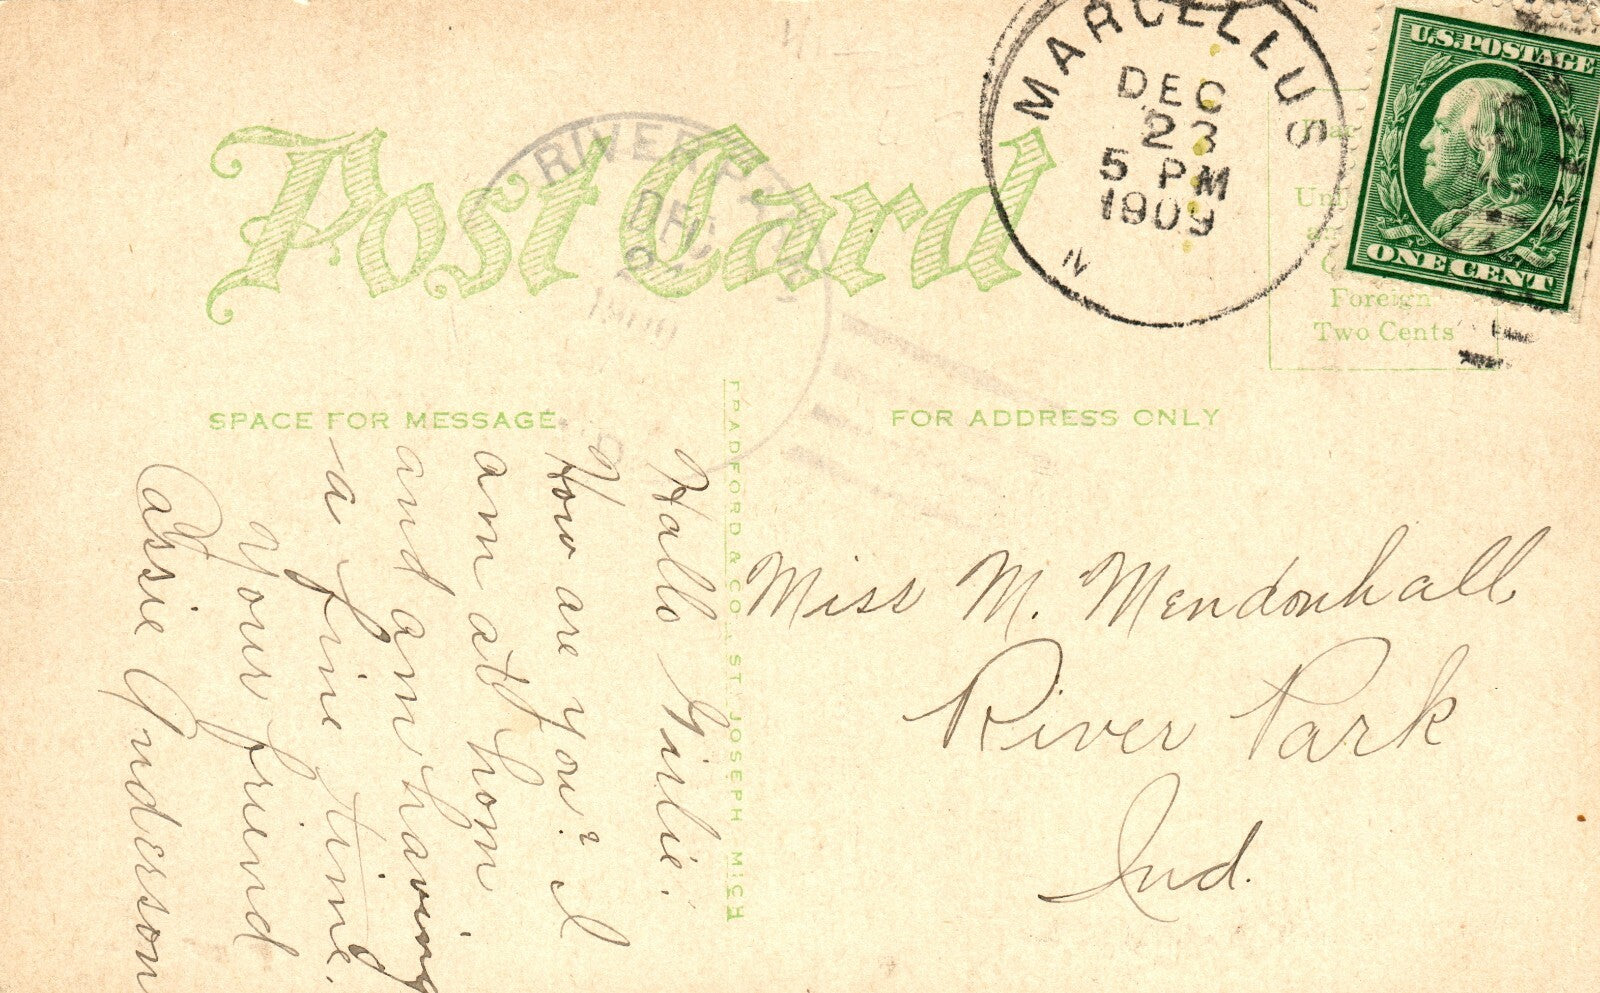 Post Card
MARCELLUS
DEC
23
5 PM
1909
N
U.S.POSTAGE
ONE CENT
RIVER PARK
DEC
Foreign
Two Cents
SPACE FOR MESSAGE
FOR ADDRESS ONLY
RADFORD & CO., ST. JOSEPH MICH
Hallo Girlie.
How are you? I
am at hom
and am having
a fine time.
Your friend
Cassie Anderson
Miss M. Mendonhall,
River Park
Ind.